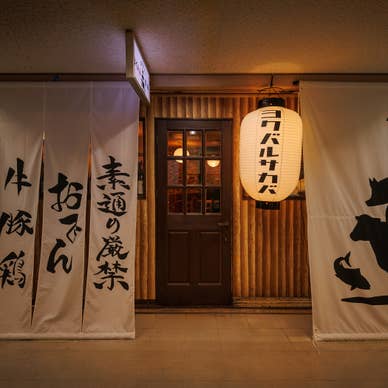 素通り厳禁
おでん
牛豚鶏
ヨクバルサカバ